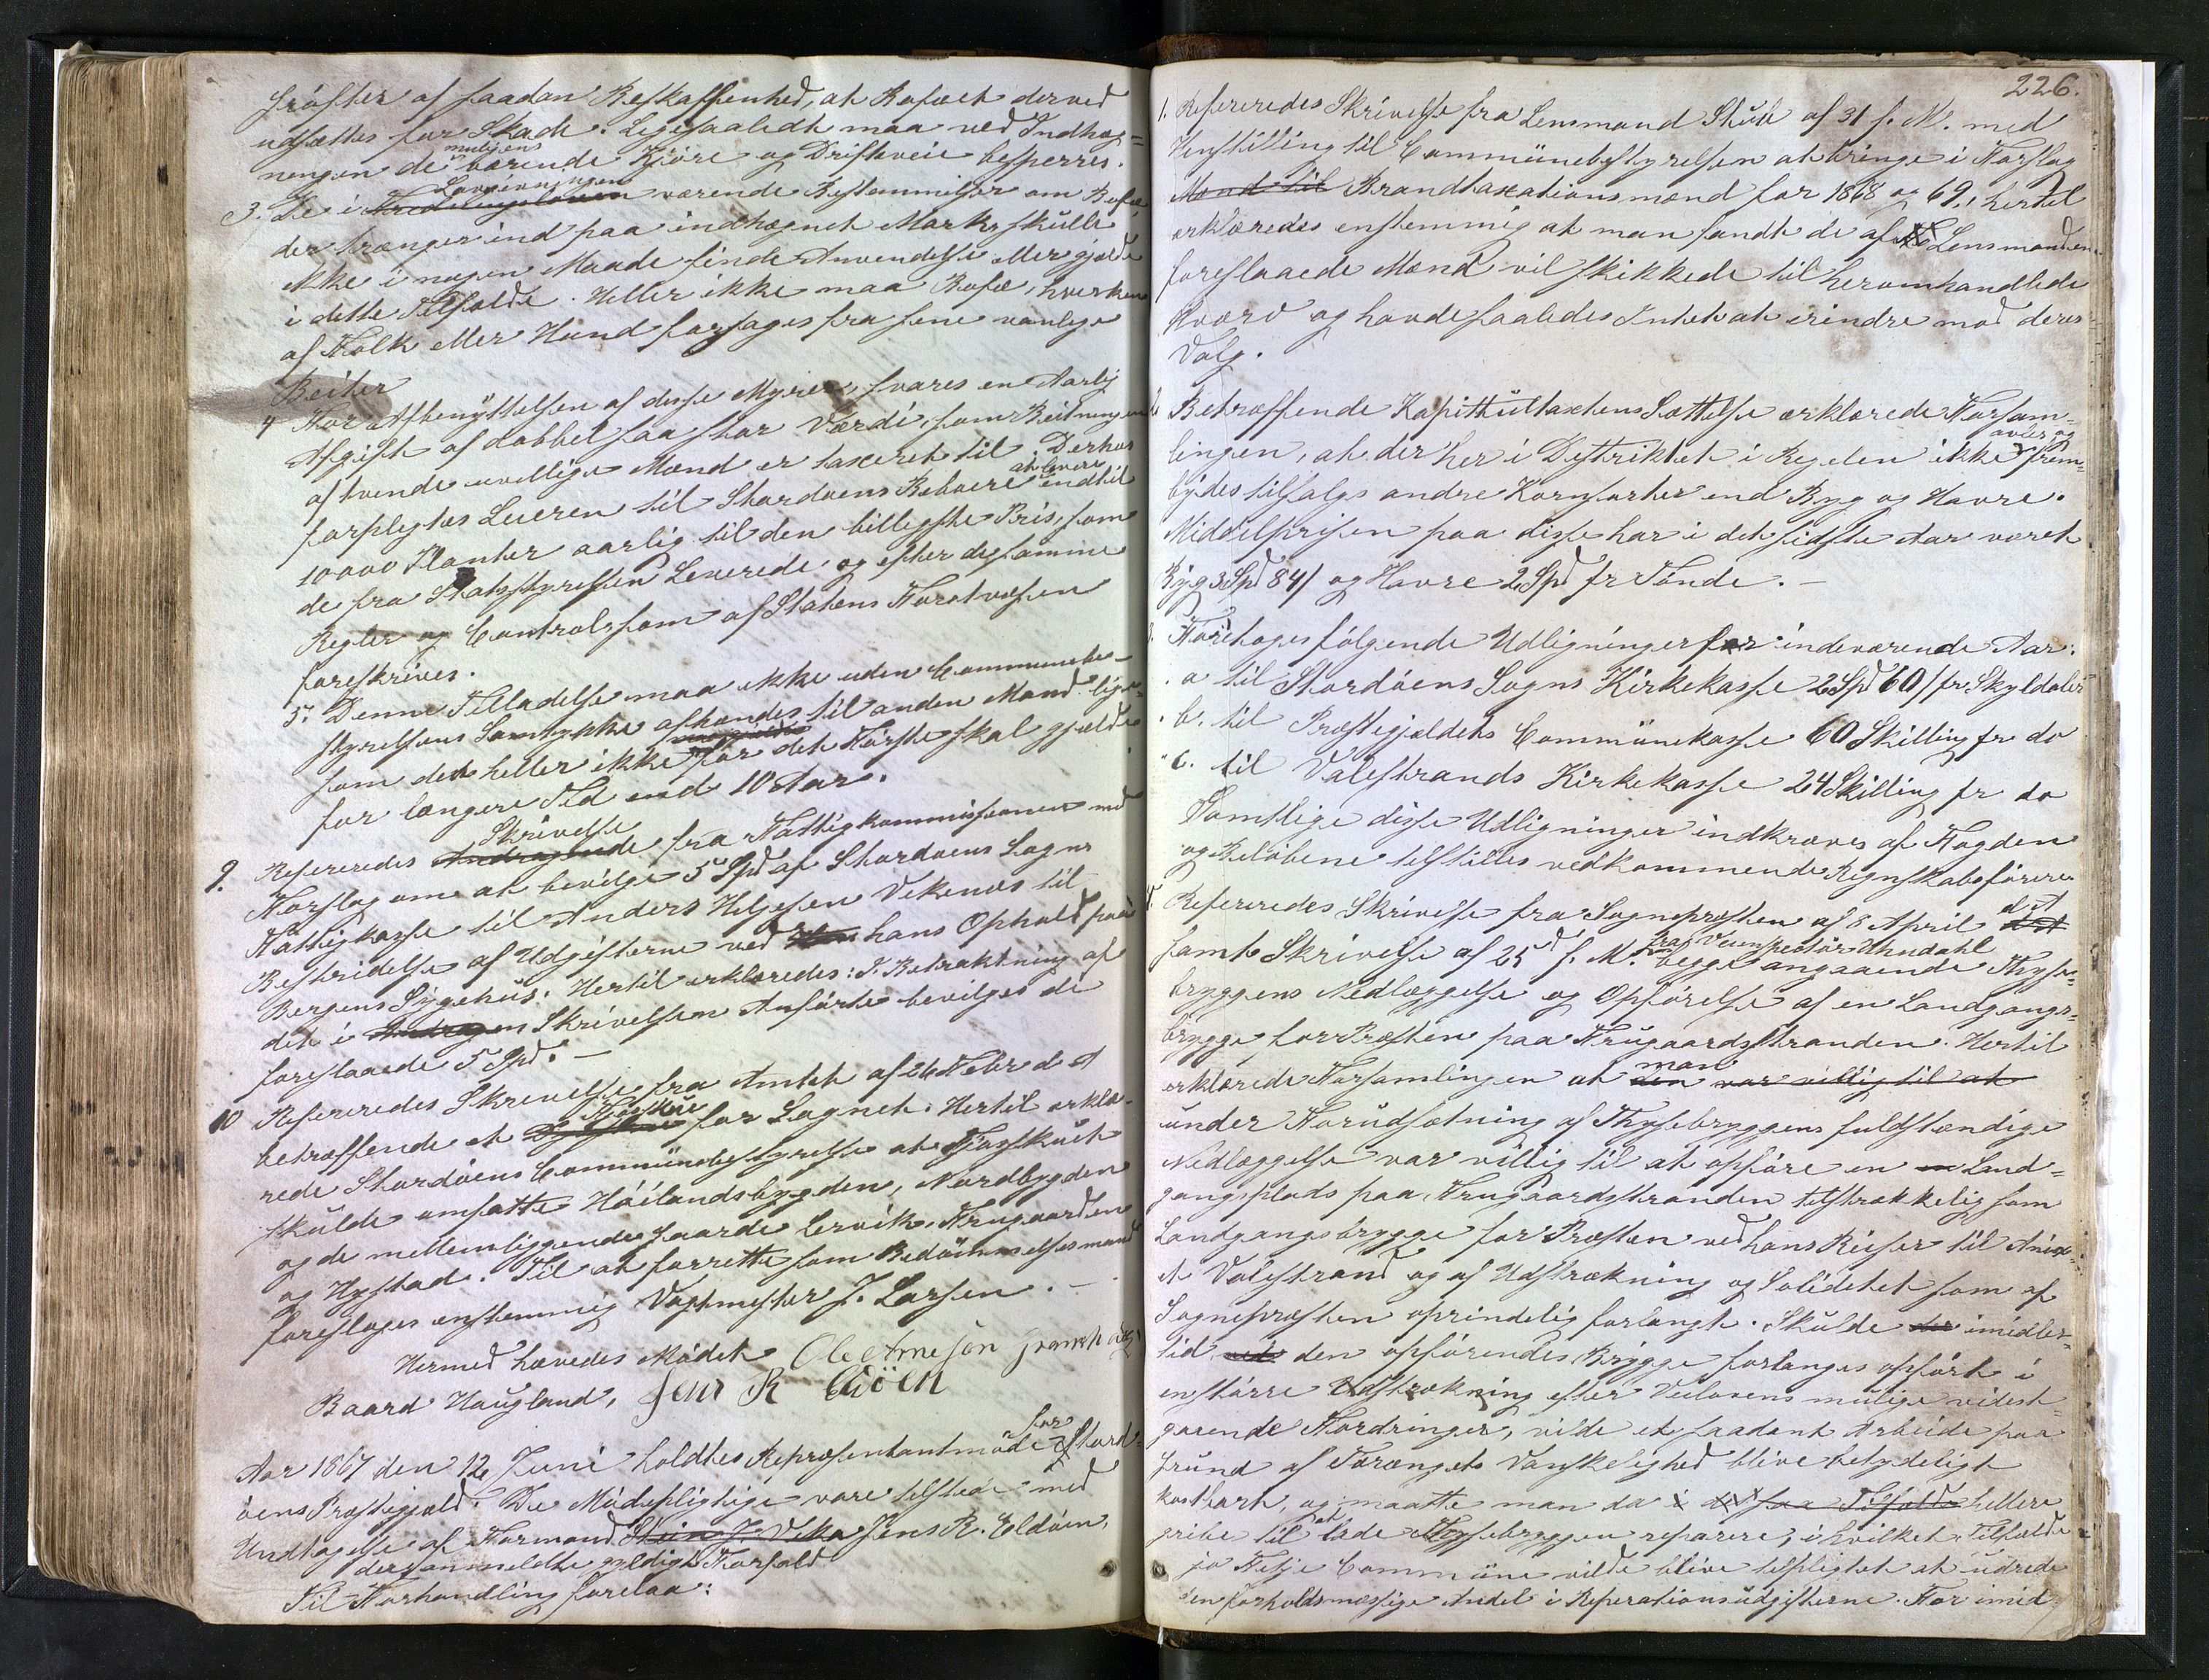 Grøfter af saadan Beskaffenhed, at Bofæet derved
udsættes for Skade. Ligesaaledt maa ved Indheg=
ningen de muligens værende Kjøre og Driftveie besperres.
3. De i Lovgivningen værende Bestemmelser om Bofæ,
der trænger ind paa indhegnet Mark, skulle
ikke i nogen Maade finde Anvendelse eller gjælde
i dette Tilfælde. Heller ikke maa Bofæ, hverken
af Folk eller Hund forjages fra sine vanlige
Beiter
4 For Afbenyttelsen af disse Myrer, svares en Aarlig
Afgift af dobbel saa stor Værdi, som Beitningen
af tvende uvillige Mænd er taxeret til. Derhos
forpligtes Leieren til Stordøens Beboere at levere indtil
10000 Planter aarlig til den billigste Pris, som
de fra Statsstyrelsen Leverede og efter de samme
Regler og Control som af Statens Forstvæsen
foreskrives.
5. Denne Tilladelse maa ikke uden Communebe-
styrelsens Samtykke afhændes til anden Mand lige=
som den heller ikke for det Første skal gjælde
for længere Tid end 10 Aar.
9. Refereredes Skrivelse fra Fattigkommissionen med
Forslag om at bevilge 5 Spd af Stordøens Sogns
Fattigkasse til Anders Helgesen Vekenæs til
Bestridelse af Udgifterne ved hans Ophold paa
Bergens Sygehus. Hertil erklæredes: I Betraktning af
det i Skrivelsen Anførte bevilges de
foreslaaede 5 Spd. —
10 Refereredes Skrivelse fra Amtet af 26 Febr d A
betræffende et for Sognet. Hertil erklæ-
rede Stordøens Communebestyrelse at
skulde omfatte Høilandsbygden, Nordbygden
og de mellemliggende Gaarde Lervik, Frugaarden
og Hystad. Til at forrette som Bedømmelsesmand
foresloges enstemmig Vagtmester J. Larsen. —
Hermed hævedes Mødet Ole Arnesen
Baard Haugland, Jens R Eldøen
Aar 1867 den 12 Juni holdtes Repræsentantmøde for Stord-
øens Præstegjæld. De Mødepligtige vare tilstede med
Undtagelse af Formand Stein J Veka Jens R. Eldøen,
der anmeldte gyldigt Forfald
Til Forhandling forelaa:
226.
1. Refereredes Skrivelse fra Lensmand Stub af 31 f. M. med
Henstilling til Communebestyrelsen at bringe i Forslag
Mænd til Brandtaxationsmænd for 1868 og 69., hertil
erklæredes enstemmig at man fandt de af Lensmanden
foreslaaede Mænd vil skikkede til heromhandlede
Hværv og havde saaledes Intet at erindre mod deres
Valg.
Betræffende Kapitultaxtens Sættelse erklærede Forsam=
lingen, at der her i Distriktet i Regelen ikke avles og frem=
bydes tilsalgs andre Kornsorter end Byg og Havre.
Middelprisen paa disse har i det sidste Aar været
Byg 3 Spd 84/ og Havre 2 Spd pr Tønde. —
Foretoges følgende Udligninger for indeværende Aar.
a til Stordøens Sogns Kirkekasse 2 Spd 60/ pr. Skyldaler
b. til Præstegjældets Communekasse 60 Skilling pr do
c. til Valestrands Kirkekasse 24 Skilling pr do
Samtlige disse Udligninger indkræves af Fogden
og Beløbene tilstilles vedkommende Regnskabsførere
4. Refereredes Skrivelse fra Sognepræsten af 8 April d A
samt Skrivelse af 25d f. M. fra Veiinspektør begge angaaende Thyse=
bryggens Nedlæggelse og Opførelse af en Landgangs=
brygge for Præsten paa Frugaardsstranden. Hertil
erklærede Forsamlingen at man den var villig til at
under Forudsætning af Thysebryggens fuldstændige
Nedlæggelse var villig til at opføre en Land=
gangsplads paa Frugaardsstranden tilstrækkelig som
Landgangsbrygge for Præsten ved hans Reiser til Anex=
et Valestrand og af Udstrækning og Soliditet som af
Sognepræsten oprindelig forlangt. Skulde imidler=
tid den opførendes Brygge forlanges opført i
en større Udstrækning efter Veilovens mulige videst
gaaende Fordringer, vilde et saadant Arbeide paa
Grund af Terængets Vanskelighed blive betydeligt
kostbart, og maatte man da i det saa Tilfælde hellere
gribe til at lade Thysebryggen reparere, i hvilket Tilfælde
jo Fitje Commune vilde blive tilpligtet at udrede
sin forholdsmæssige Andel i Reparationsudgifterne. For imid